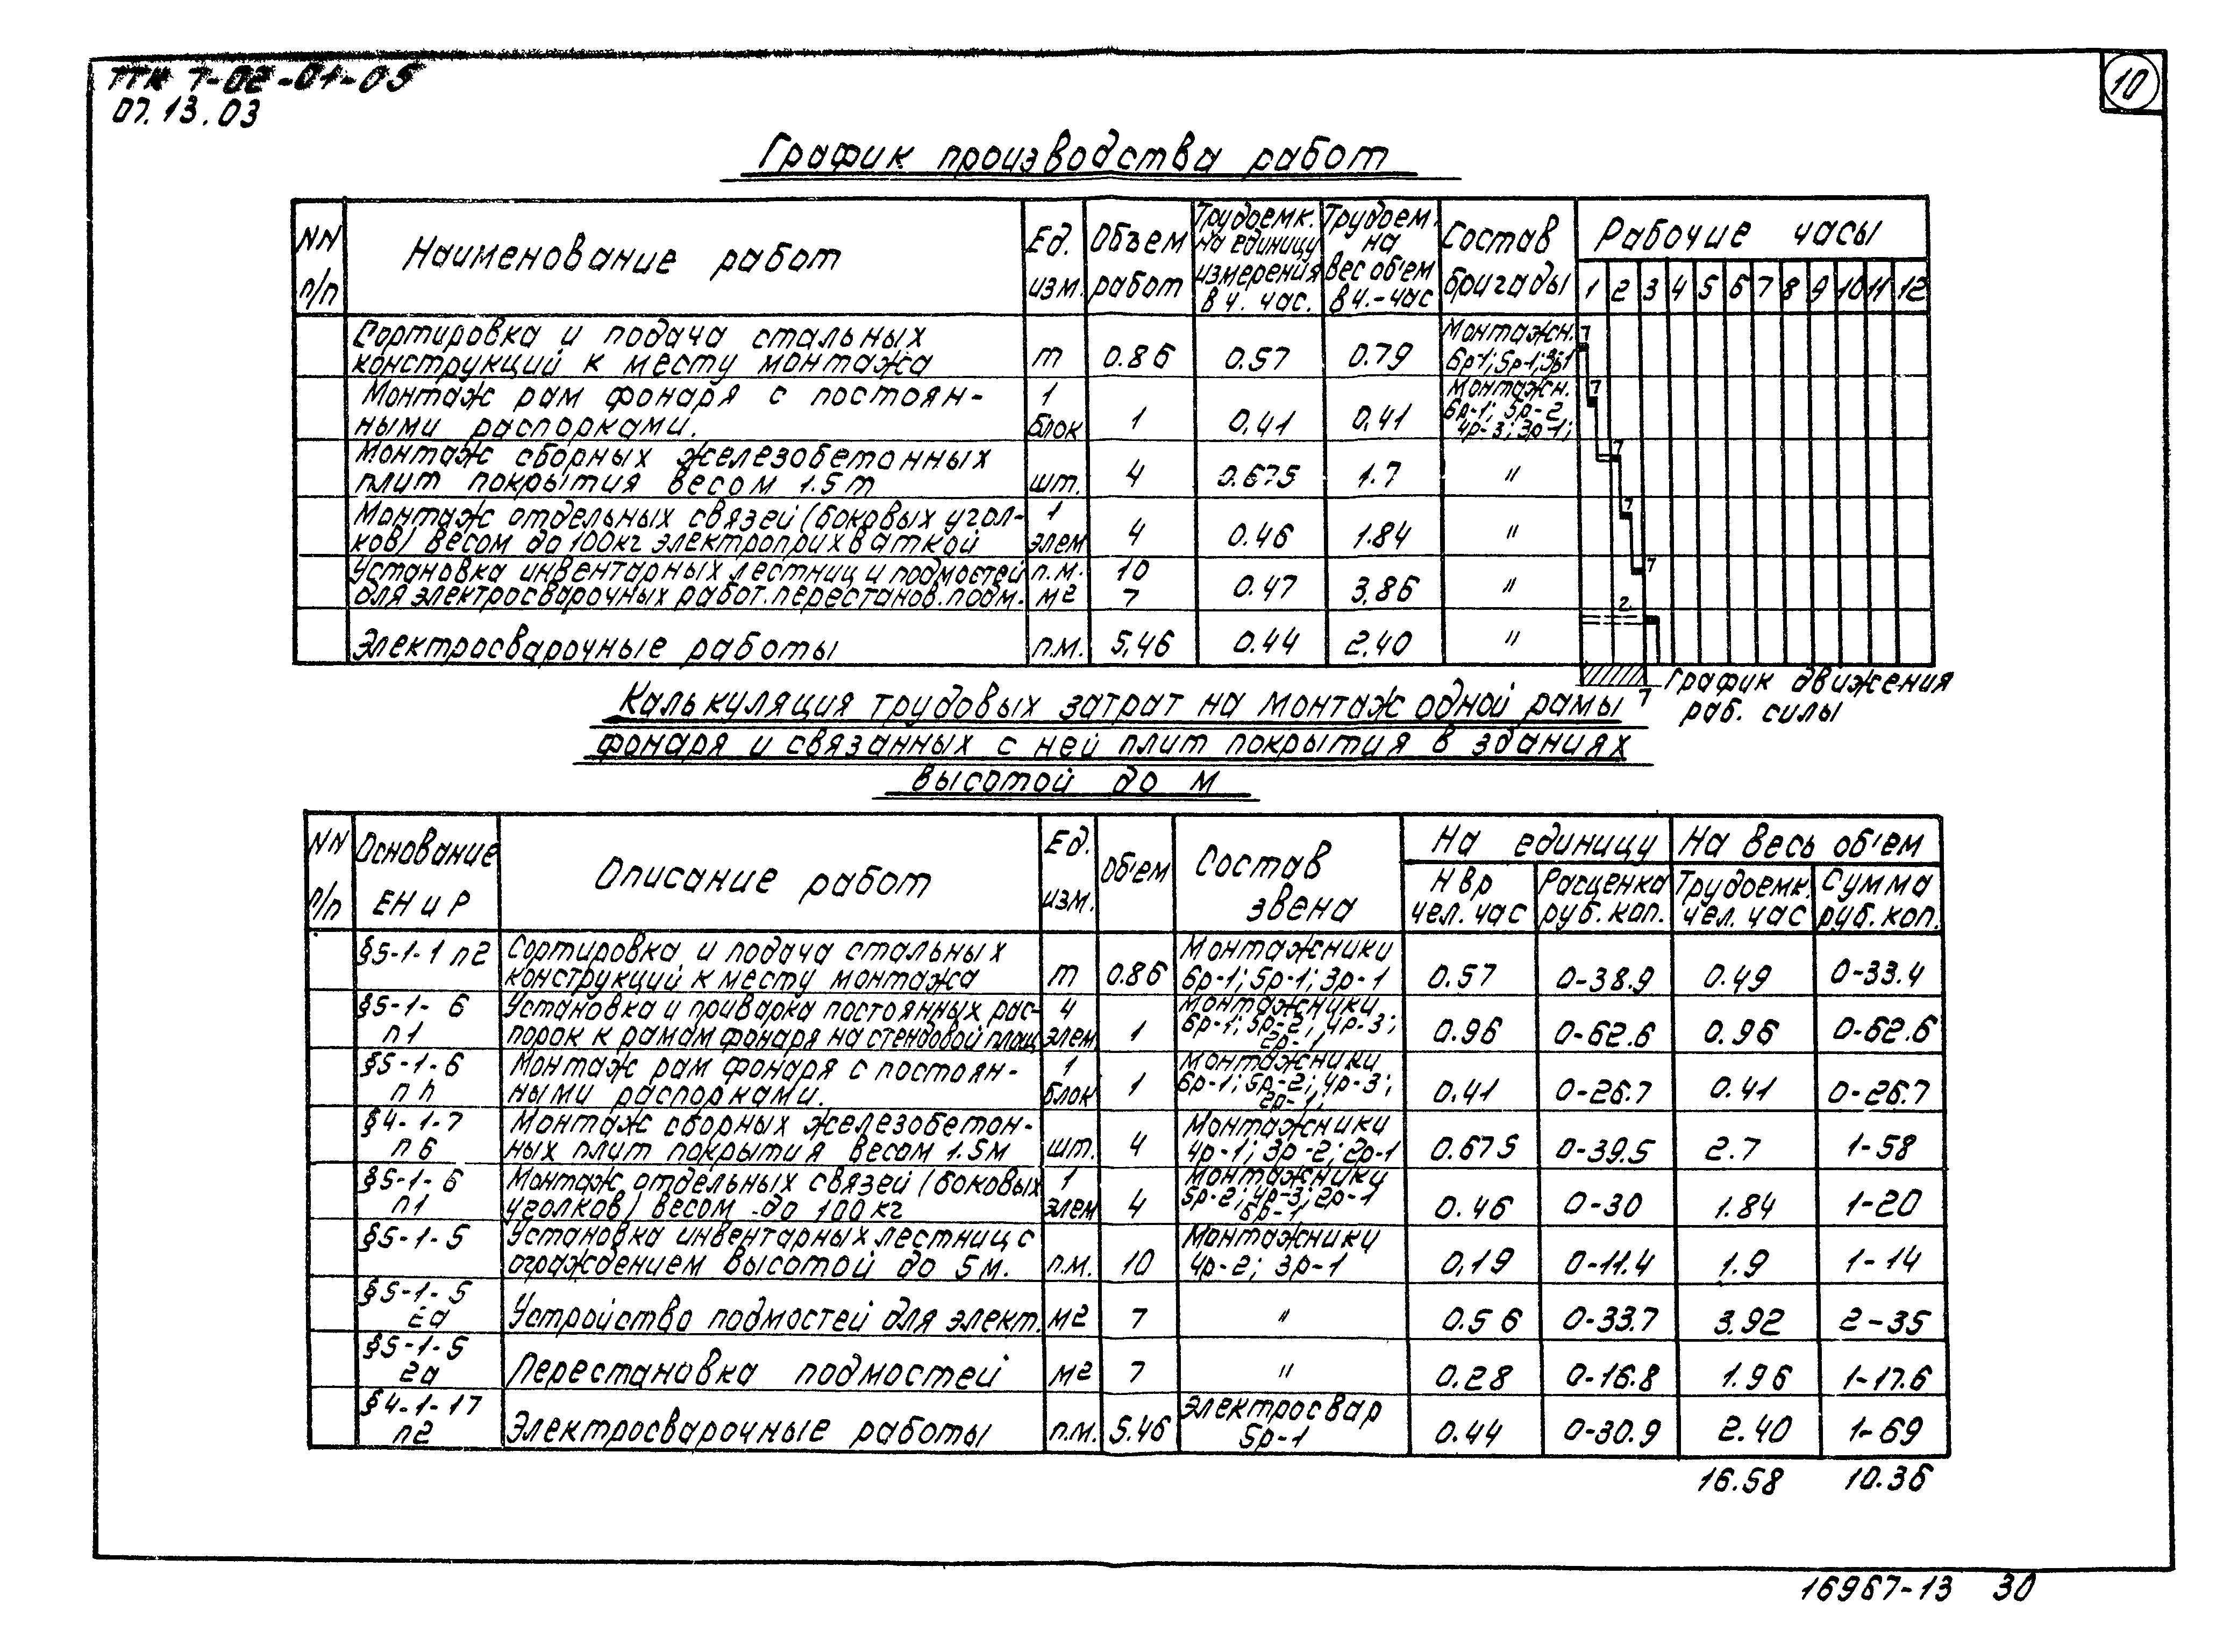 ТТК 7-02-01-05
07.13.03
10
График производства работ
NN п/п | Наименование работ | Ед. изм. | Объем работ | Трудоемк. на единицу измерения в ч. час. | Трудоем. на вес объем в ч.-час | Состав бригады | Рабочие часы
1 2 3 4 5 6 7 8 9 10 11 12
Сортировка и подача стальных конструкций к месту монтажа | т | 0.86 | 0.57 | 0.79 | Монтажн. 6р-1; 5р-1; 3р-1 | 7
Монтаж рам фонаря с постоян-ными распорками. | 1 блок | 1 | 0.41 | 0,41 | Монтажн. 6р-1; 5р-2 4р-3; 3р-1; | 7
Монтаж сборных железобетонных плит покрытия весом 1.5т | шт. | 4 | 0.675 | 1.7 | " | 7
Монтаж отдельных связей (боковых угол-ков) весом до 100кг электроприхваткой | 1 элем | 4 | 0.46 | 1.84 | " | 7
Установка инвентарных лестниц и подмостей для электросварочных работ. перестанов. подм. | п.м. м2 | 10 7 | 0.47 | 3,86 | " | 7
Электросварочные работы | п.м. | 5,46 | 0.44 | 2.40 | " | 2
7 График движения
раб. силы
Калькуляция трудовых затрат на монтаж одной рамы
фонаря и связанных с ней плит покрытия в зданиях
высотой до м
NN п/п | Основание ЕНиР | Описание работ | Ед. изм. | Об'ем | Состав звена | На единицу | На весь об'ем
Н вр чел. час | Расценка руб. коп. | Трудоемк. чел. час | Сумма руб. коп.
§5-1-1 п2 | Сортировка и подача стальных конструкций к месту монтажа | т | 0.86 | Монтажники 6р-1; 5р-1; 3р-1 | 0.57 | 0-38.9 | 0.49 | 0-33.4
§5-1-6 п1 | Установка и приварка постоянных рас-порок к рамам фонаря на стендовой площ | 4 элем | 1 | Монтажники 6р-1; 5р-2, 4р-3; 2р-1 | 0.96 | 0-62.6 | 0.96 | 0-62.6
§5-1-6 п h | Монтаж рам фонаря с постоян-ными распорками. | 1 блок | 1 | Монтажники 6р-1; 5р-2; 4р-3; 2р-1; | 0.41 | 0-26.7 | 0.41 | 0-26.7
§4-1-7 п6 | Монтаж сборных железобетон-ных плит покрытия весом 1.5м | шт. | 4 | Монтажники 4р-1; 3р-2; 2р-1 | 0.675 | 0-39.5 | 2.7 | 1-58
§5-1-6 п1 | Монтаж отдельных связей (боковых уголков) весом до 100кг | 1 элем | 4 | Монтажники 5р-2; 4р-3; 2р-1 6р-1 | 0.46 | 0-30 | 1.84 | 1-20
§5-1-5 | Установка инвентарных лестниц с ограждением высотой до 5м. | п.м. | 10 | Монтажники 4р-2; 3р-1 | 0,19 | 0-11.4 | 1.9 | 1-14
§5-1-5 2а | Устройство подмостей для элект. | м2 | 7 | " | 0.56 | 0-33.7 | 3.92 | 2-35
§5-1-5 2а | Перестановка подмостей | м2 | 7 | " | 0.28 | 0-16.8 | 1.96 | 1-17.6
§4-1-17 п2 | Электросварочные работы | п.м. | 5.46 | Электросвар 5р-1 | 0.44 | 0-30.9 | 2.40 | 1-69
16.58 10.36
16967-13 30